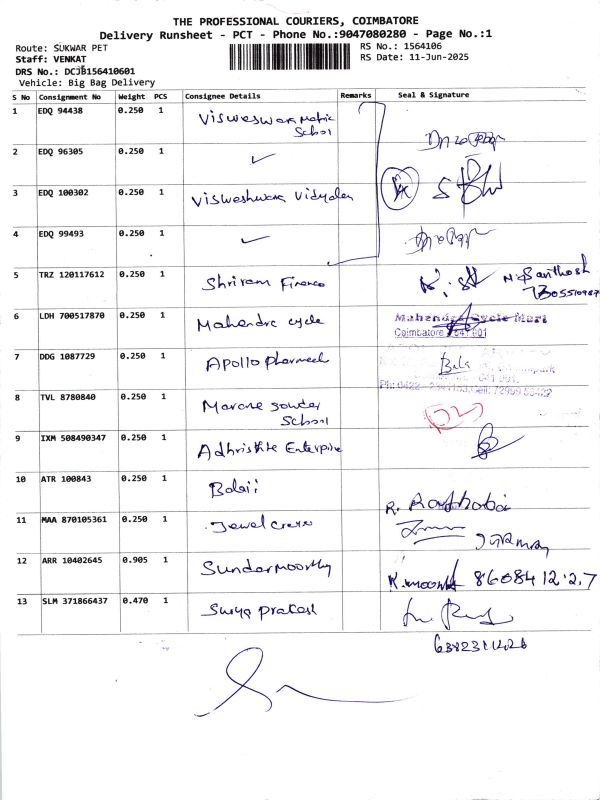 THE PROFESSIONAL COURIERS, COIMBATORE
Delivery Runsheet - PCT - Phone No.:9047080280 - Page No.:1
Route: SUKWAR PET
RS No.: 1564106
Staff: VENKAT
RS Date: 11-Jun-2025
DRS No.: DCJB156410601
Vehicle: Big Bag Delivery
S No Consignment No Weight PCS Consignee Details Remarks Seal & Signature
1 EDQ 94438 0.250 1 Visweswara Matric
School
2 EDQ 96305 0.250 1 ✓
3 EDQ 100302 0.250 1 Visweshwara Vidyalaya
4 EDQ 99493 0.250 1 ✓
5 TRZ 120117612 0.250 1 Shriram Finance N. Santhosh
6 LDH 700517870 0.250 1 Mahendra cycle Mahendra Cycle Mart
Coimbatore 641 001
7 DDG 1087729 0.250 1 Apollo Bala
8 TVL 8780840 0.250 1
School
9 IXM 508490347 0.250 1 Adhrishte Enterprise
10 ATR 100843 0.250 1 Balaji
11 MAA 870105361 0.250 1 Jewel
12 ARR 10402645 0.905 1 Sundarmoorthy
13 SLM 371866437 0.470 1 Surya prakash